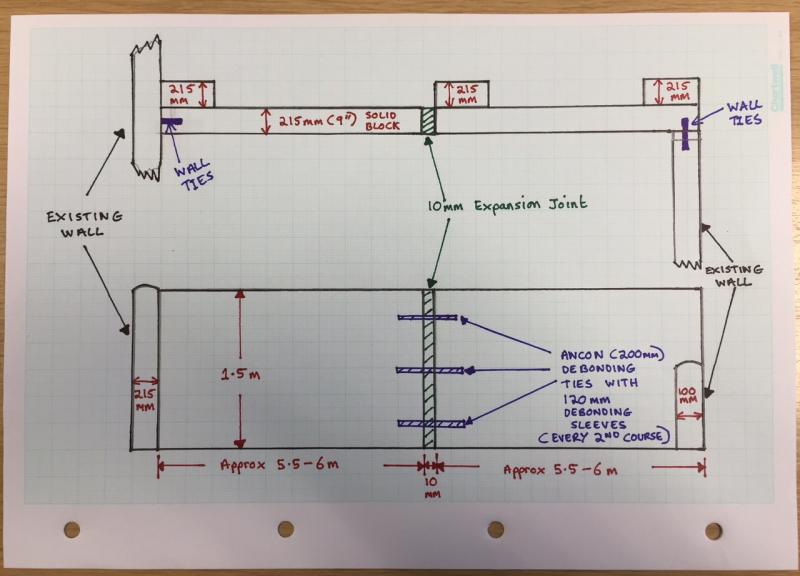 Chartwell
215
MM
215
MM
215
MM
215mm (9") SOLID
BLOCK
WALL
TIES
WALL
TIES
10mm Expansion Joint
EXISTING
WALL
EXISTING
WALL
1.5m
215
MM
ANCON (200mm)
DEBONDING
TIES WITH
120mm
DEBONDING
SLEEVES
(EVERY 2ND COURSE)
100
MM
Approx 5.5-6m
10
MM
Approx 5.5-6m